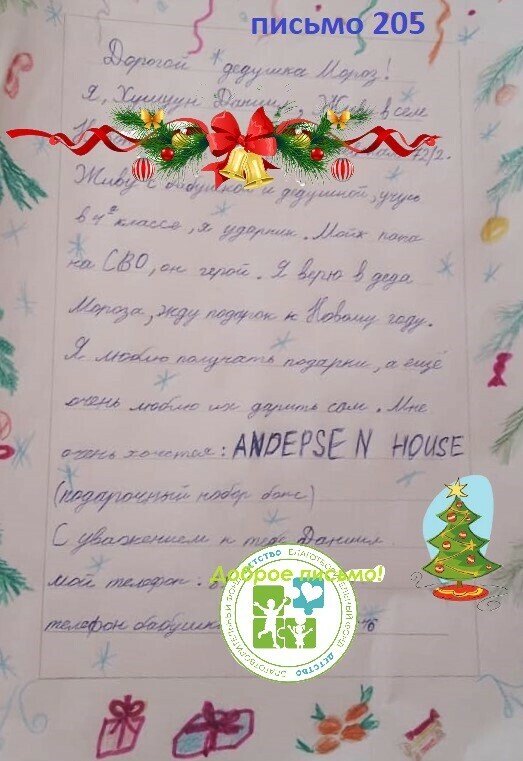 письмо 205
Дорогой дедушка Мороз!
Я, Хушуун Даниил, Живу в сем
72/2.
Живу с бабушкой и дедушкой, учусь
в 4ᵃ классе, я ударник. Мой папа
на СВО, он герой. Я верю в деда
Мороза, жду подарок к Новому году.
Я люблю получать подарки, а ещё
очень люблю их дарить сам. Мне
очень хочется: ANDEPSEN HOUSE
(подарочный набор бокс)
С уважением к тебе Даниил
мой телефон: 8
телефон бабушки 76
Доброе письмо!
БЛАГОТВОРИТЕЛЬНЫЙ ФОНД ДЕТСТВО
БЛАГОТВОРИТЕЛЬНЫЙ ФОНД ДЕТСТВО